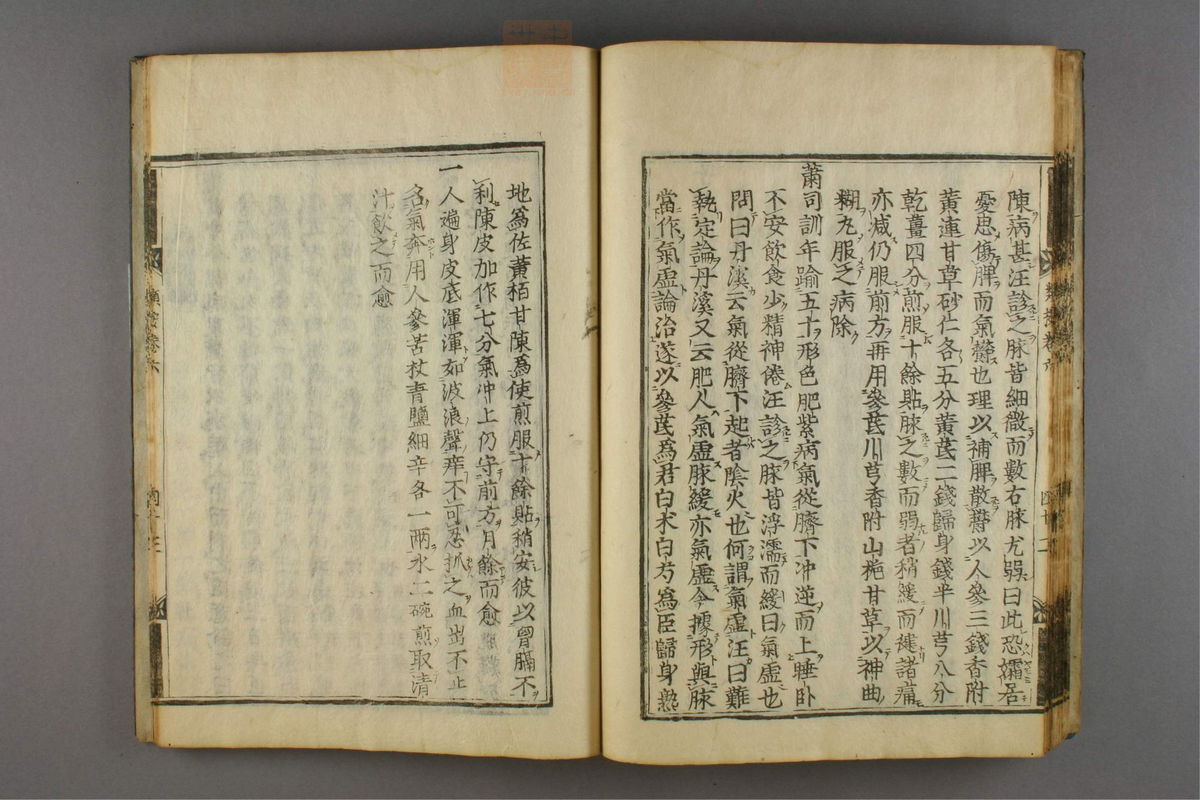 陳病甚汪診之脉皆細微而數右脉尤弱曰此恐孀居
憂思傷脾而氣欝也理以補脾散欝以人參三錢香附
黃連甘草砂仁各五分黃芪二錢歸身錢半川芎八分
乾薑四分煎服十餘貼脉之數而弱者稍緩而健諸痛
亦减仍服前方再用參芪川芎香附山梔甘草以神曲
糊丸服之病除
蕭司訓年踰五十形色肥紫病氣從臍下冲逆而上睡臥
不安飲食少精神倦汪診之脉皆浮濡而緩曰氣虛也
問曰丹溪云氣從臍下起者陰火也何謂氣虛汪曰難
執定論丹溪又云肥人氣虛脉緩亦氣虛今據形與脉
當作氣虛論治遂以參芪爲君白朮白芍爲臣歸身熟
地爲佐黃栢甘陳爲使煎服十餘貼稍安彼以胷膈不
利陳皮加作七分氣冲上仍守前方月餘而愈
一人遍身皮底渾渾如波浪聲痒不可忍抓之血出不止
名氣奔用人參苦杖青鹽細辛各一兩水二碗煎取清
汁飲之而愈